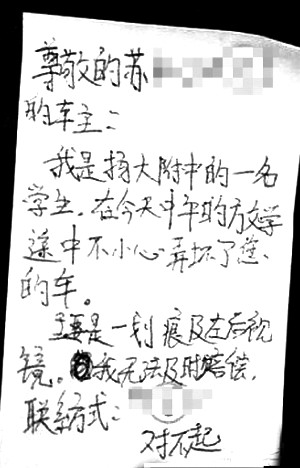 尊敬的苏
的车主：
我是扬大附中的一名
学生，在今天中午的放学
途中不小心弄坏了您
的车。
主要是一划痕及左后视
镜。我无法及时赔偿，
联系方式：
对不起